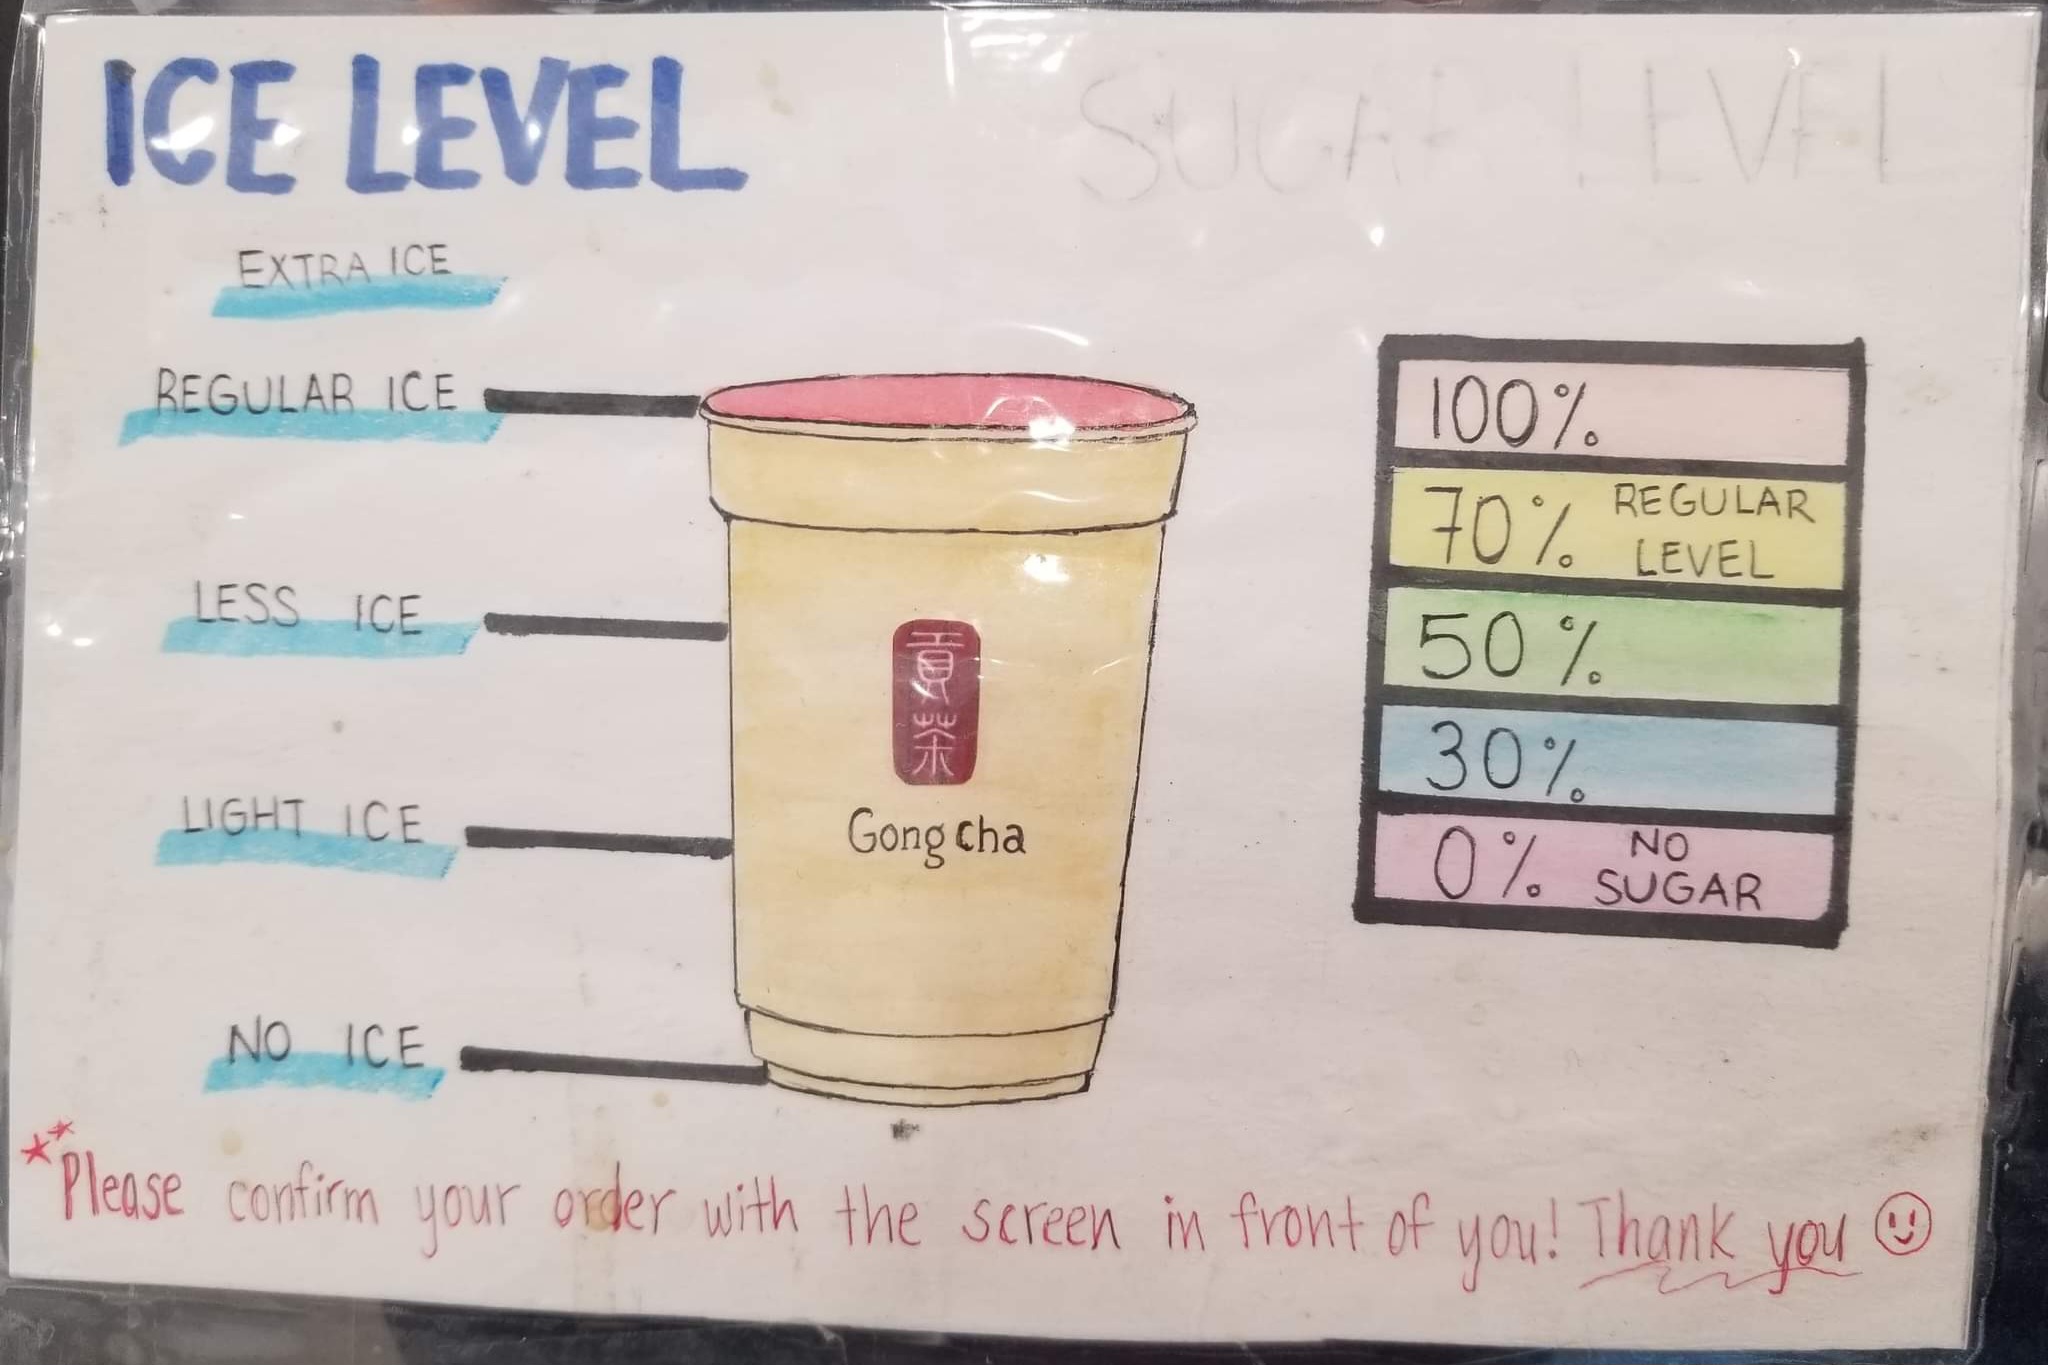 ICE LEVEL
SUGAR LEVEL
EXTRA ICE
REGULAR ICE
LESS ICE
LIGHT ICE
NO ICE
貢
茶
Gong cha
100%
70% REGULAR
LEVEL
50%
30%
0% NO
SUGAR
**Please confirm your order with the screen in front of you! Thank you